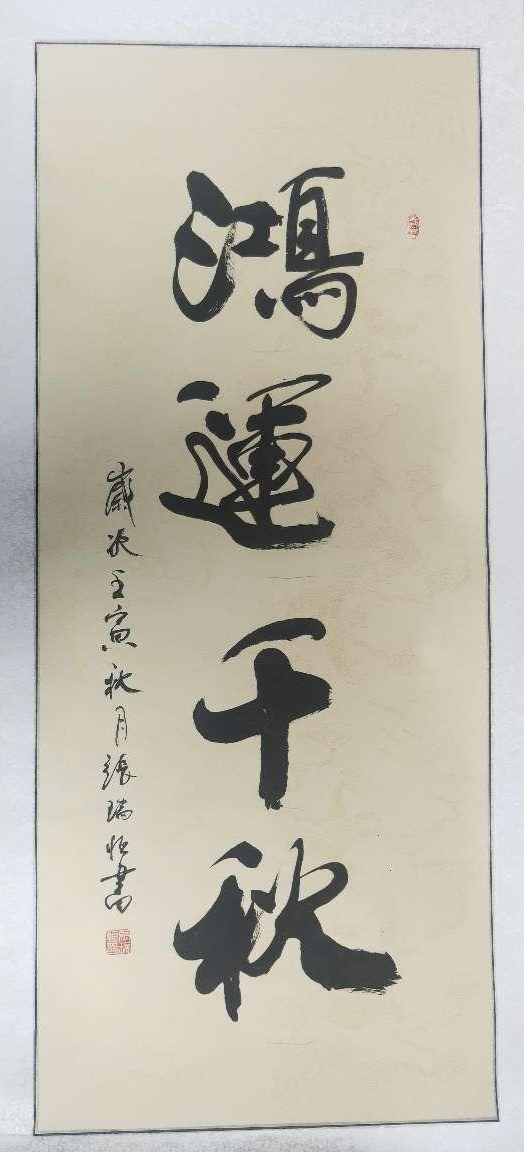 鴻運千秋
歲次壬寅秋月張瑞恒書